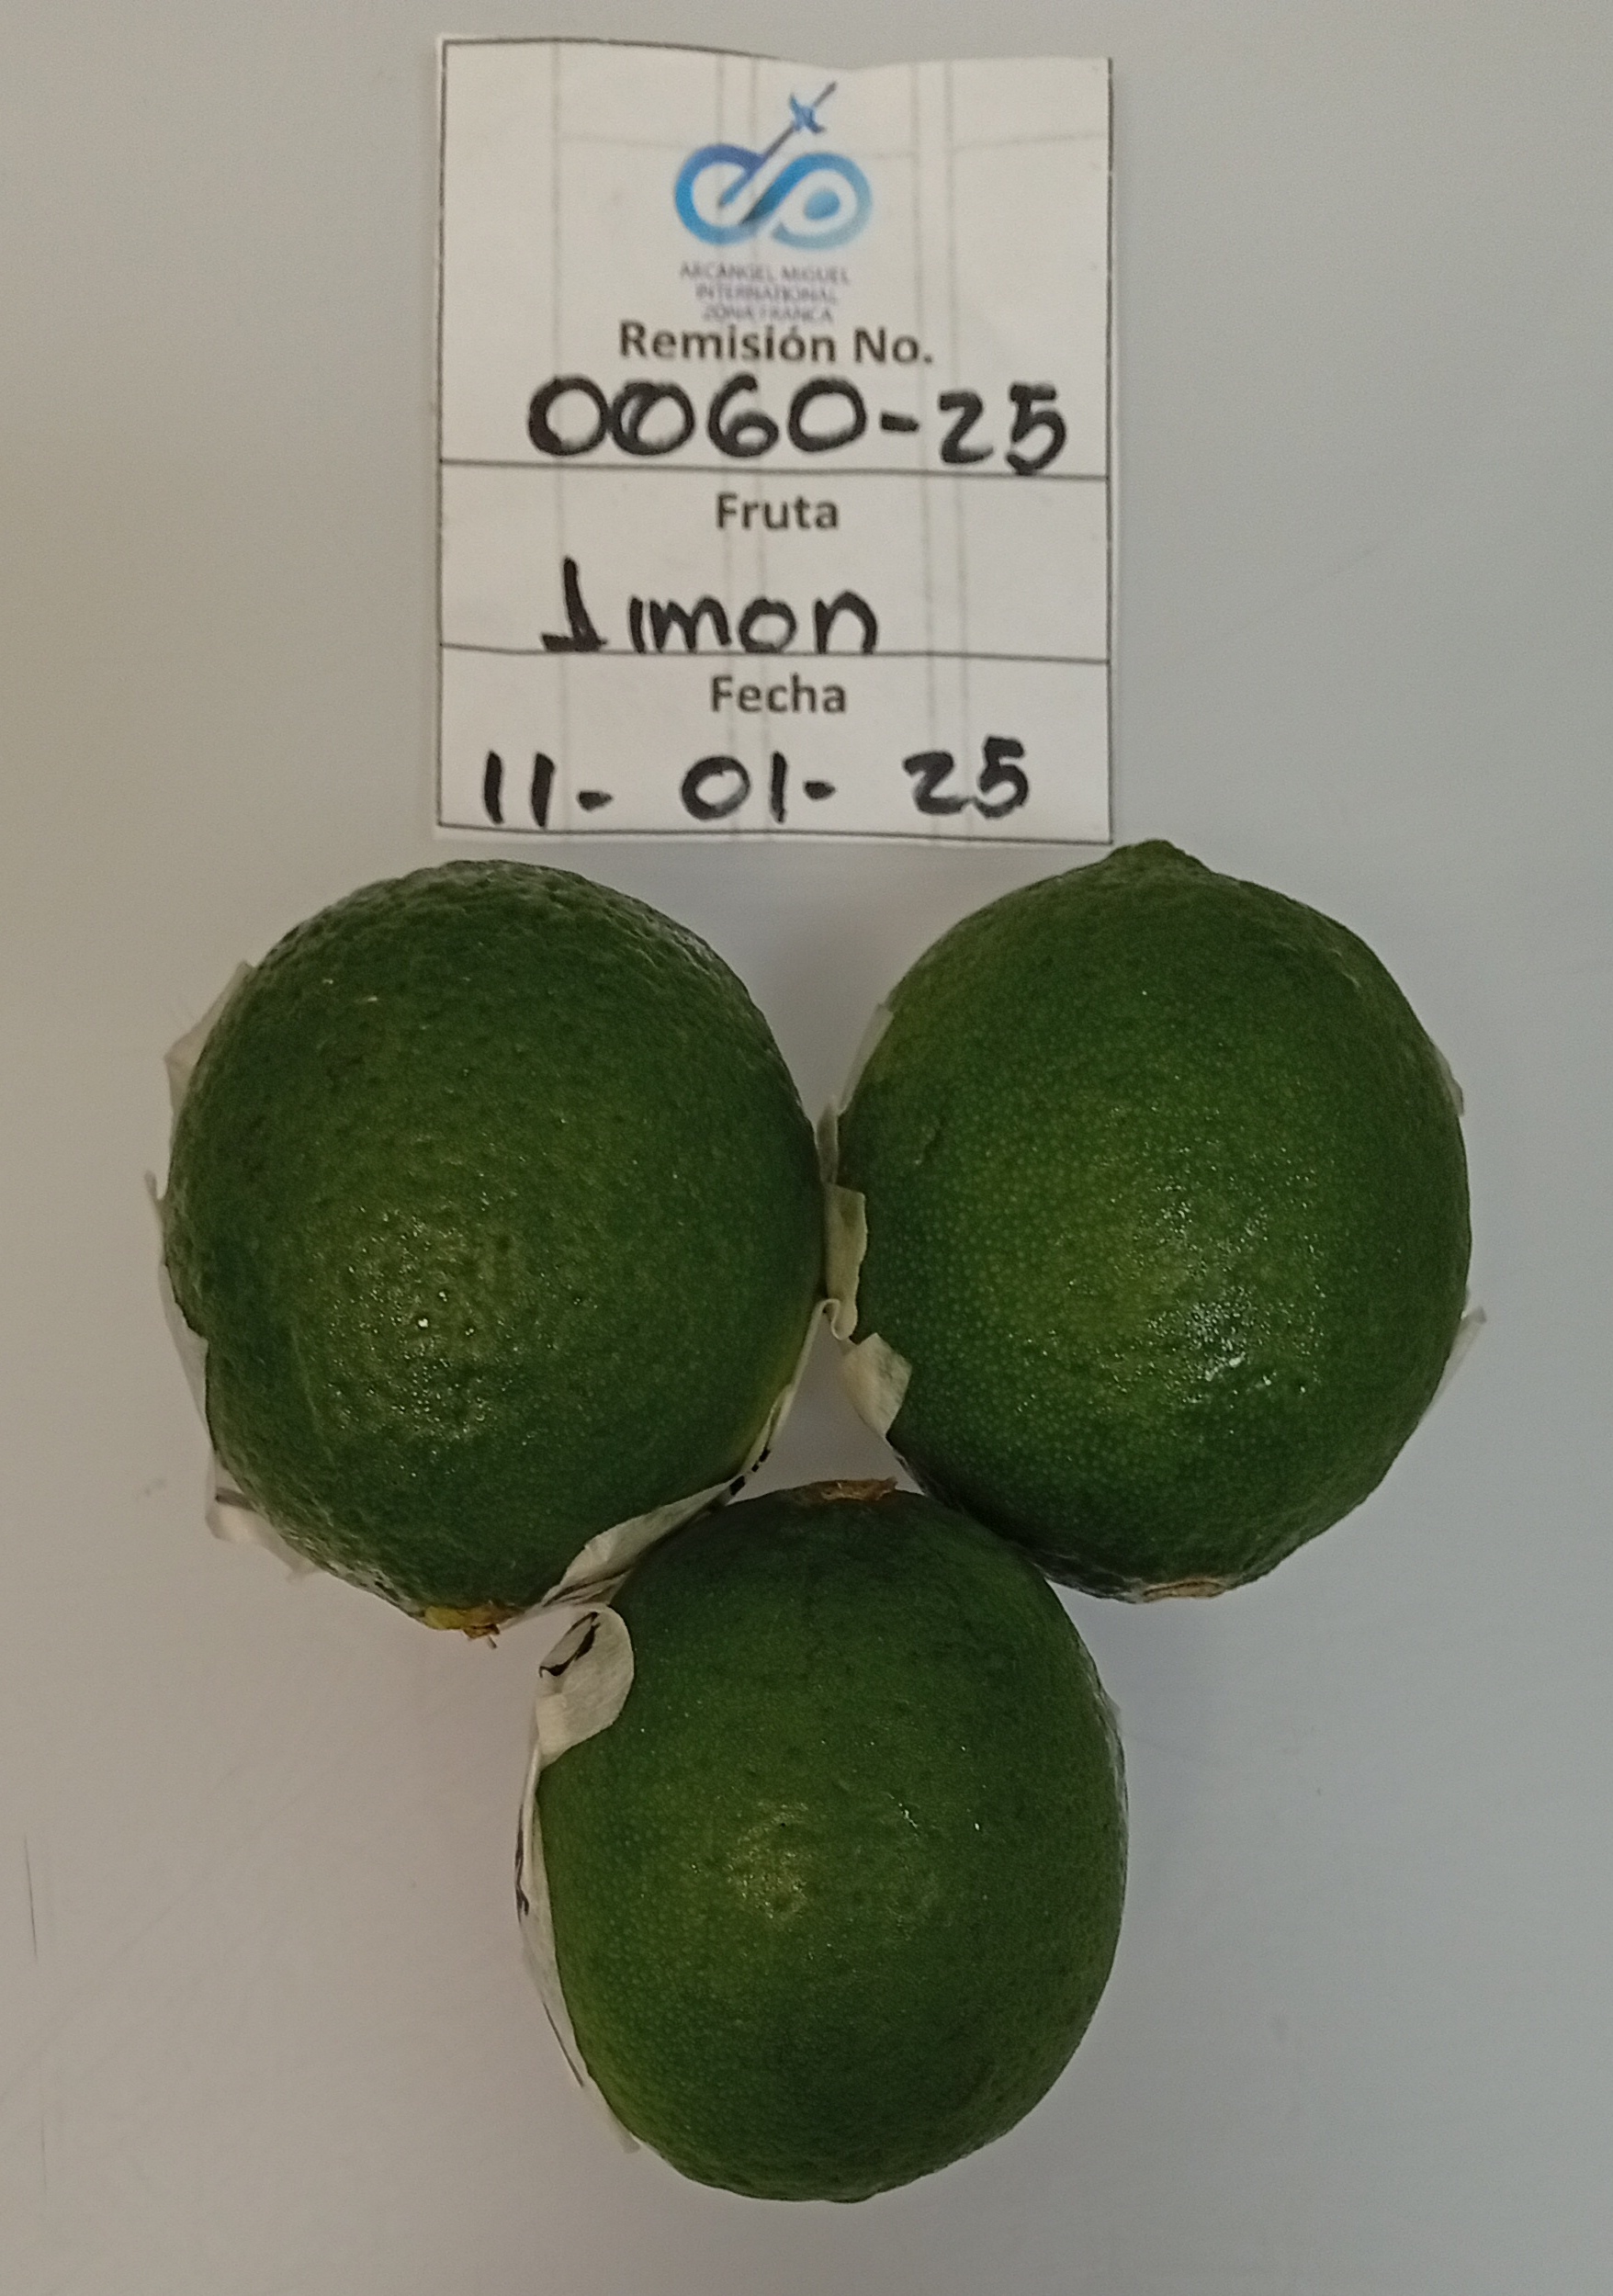 ARCANGEL MIGUEL
INTERNATIONAL
ZONA FRANCA
Remisión No.
0060-25
Fruta
Limon
Fecha
11- 01- 25